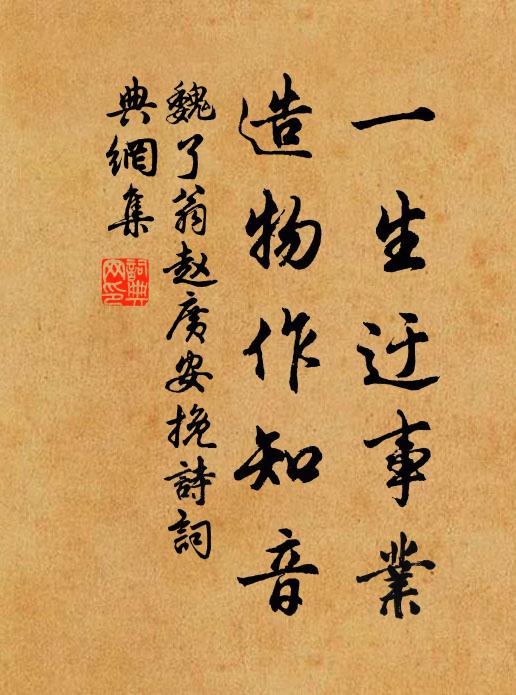 一生迂事業
造物作知音
魏了翁赵廣安挽詩詞
典網集
詞典
网印